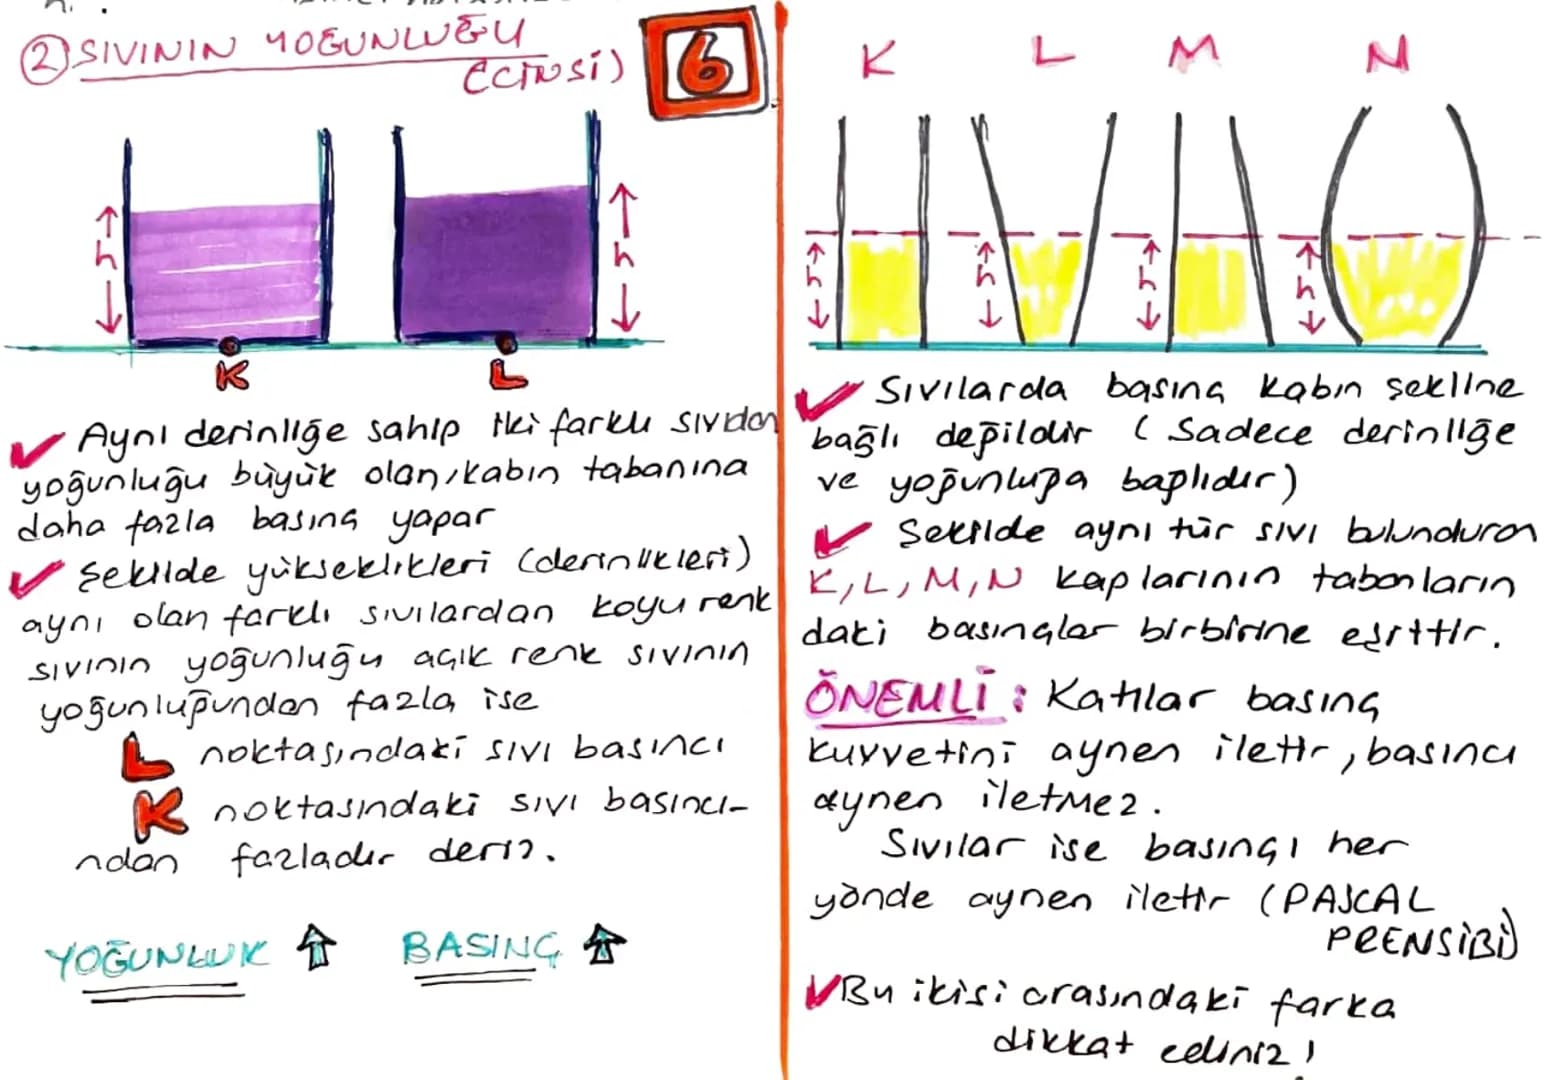 ② SIVININ YOĞUNLUĞU
(CİNSİ)
6
h
h
K
L
✓ Aynı derinliğe sahip iki farklı sıvıdan
yoğunluğu büyük olan, kabın tabanına
daha fazla basınç yapar
✓ Şekilde yükseklikleri (derinlikleri)
aynı olan farklı sıvılardan koyu renk
sıvının yoğunluğu açık renk sıvının
yoğunluğundan fazla ise
L noktasındaki sıvı basıncı
K noktasındaki sıvı basıncı-
ndan fazladır deriz.
YOĞUNLUK ⇧ BASINÇ ⇧
K L M N
h h h h
✓ Sıvılarda basınç kabın şekline
bağlı değildir (Sadece derinliğe
ve yoğunluğa bağlıdır)
✓ Şekilde aynı tür sıvı bulunduran
K, L, M, N kaplarının tabanların
daki basınçlar birbirine eşittir.
ÖNEMLİ : Katılar basınç
kuvvetini aynen iletir, basıncı
aynen iletmez.
Sıvılar ise basınçı her
yönde aynen iletir (PASCAL
PRENSİBİ)
✓ Bu ikisi arasındaki farka
dikkat ediniz!